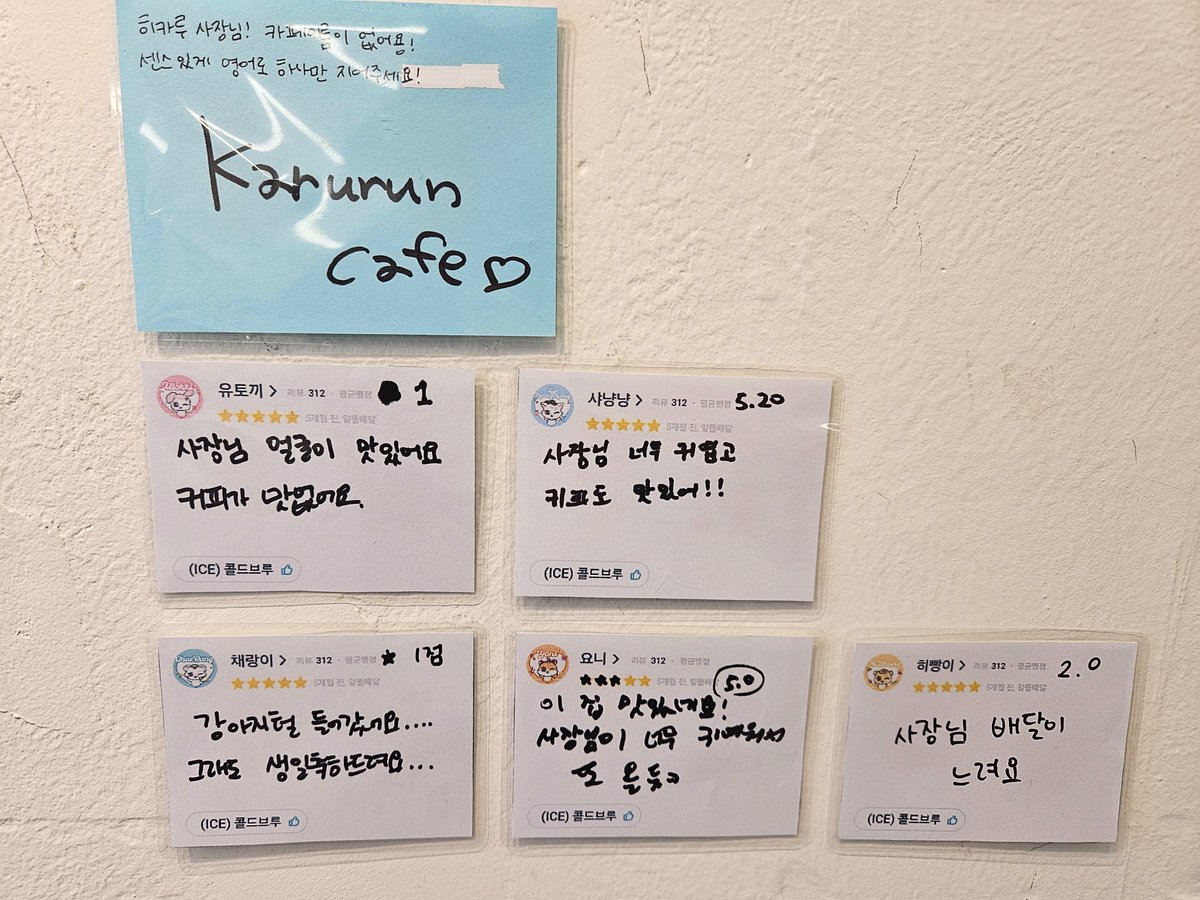 히카루 사장님! 카페이름이 없어용!
센스있게 영어로 하나만 지어주세요!
Karurun
cafe♡
유토끼 > 리뷰 312 · 평균별점 1
★★★★★ 5개월 전, 알뜰배달
사장님 얼굴이 맛있어요
커피가 맛없어요.
(ICE) 콜드브루
샤냥냥 > 리뷰 312 · 평균별점 5.20
★★★★★ 5개월 전, 알뜰배달
사장님 너무 귀엽고
커피도 맛있어!!
(ICE) 콜드브루
채랑이 > 리뷰 312 · 평균별점 ★ 1점
★★★★★ 5개월 전, 알뜰배달
강아지털 들어갔어요....
그래도 생일축하드려요...
(ICE) 콜드브루
요니 > 리뷰 312 · 평균별점
★★★★★ 5개월 전, 알뜰 5.0
이 집 맛있네요!
사장님이 너무 귀여워서
또 올듯
(ICE) 콜드브루
히빵이 > 리뷰 312 · 평균별점 2.0
★★★★★ 5개월 전, 알뜰배달
사장님 배달이
느려요
(ICE) 콜드브루